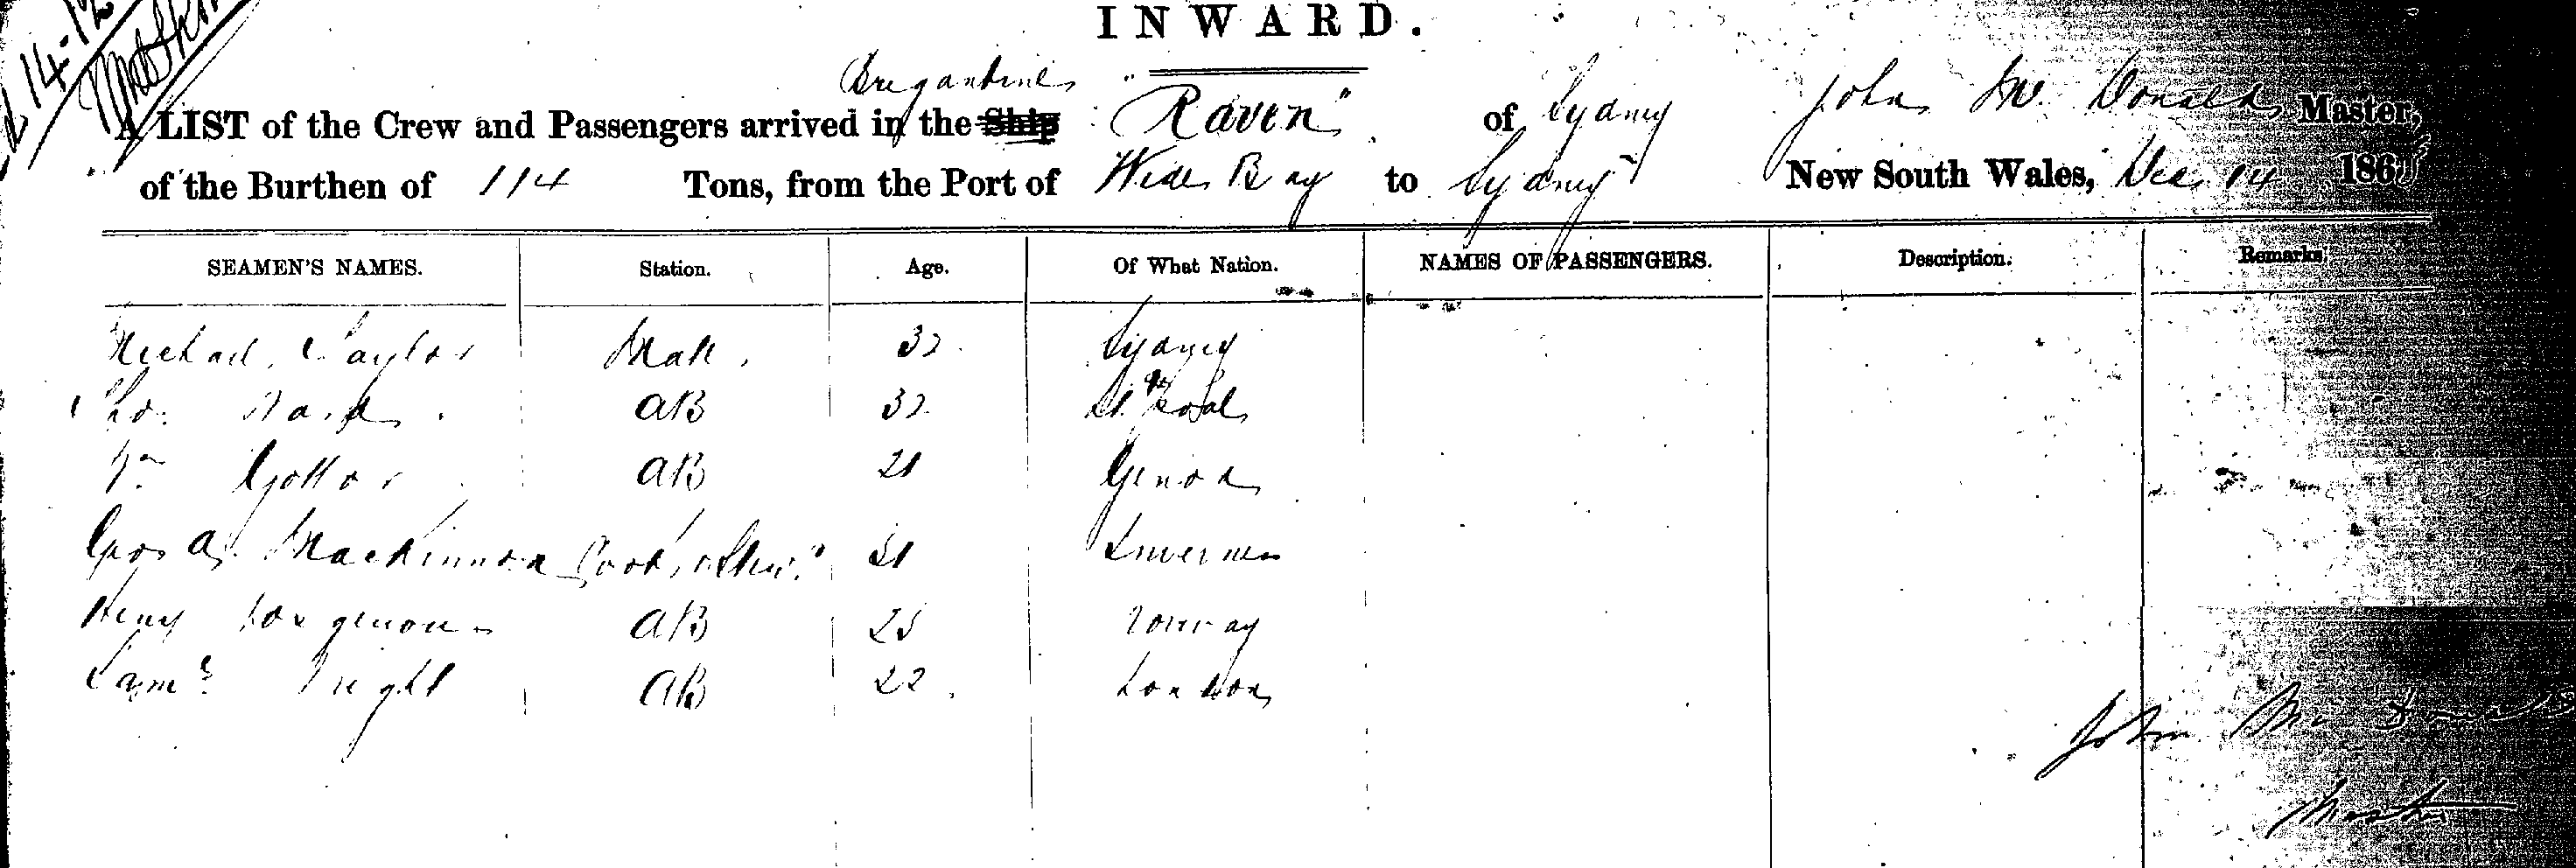 14-12
INWARD.
Bregantine
A LIST of the Crew and Passengers arrived in the Ship "Raven" of Sydney John Mc Donald Master,
of the Burthen of 114 Tons, from the Port of Wide Bay to Sydney New South Wales, Dec 14 186
SEAMEN'S NAMES. Station. Age. Of What Nation. NAMES OF PASSENGERS. Description. Remarks
Michael Taylor Mate 32 Sydney
Tho: AB 32
AB 21 Genoa
Geo A. MacKinnon Cook & Stewd 21 Inverness
Heny AB 25 Norway
Saml Wright AB 22 London
John Mc Donald
Master